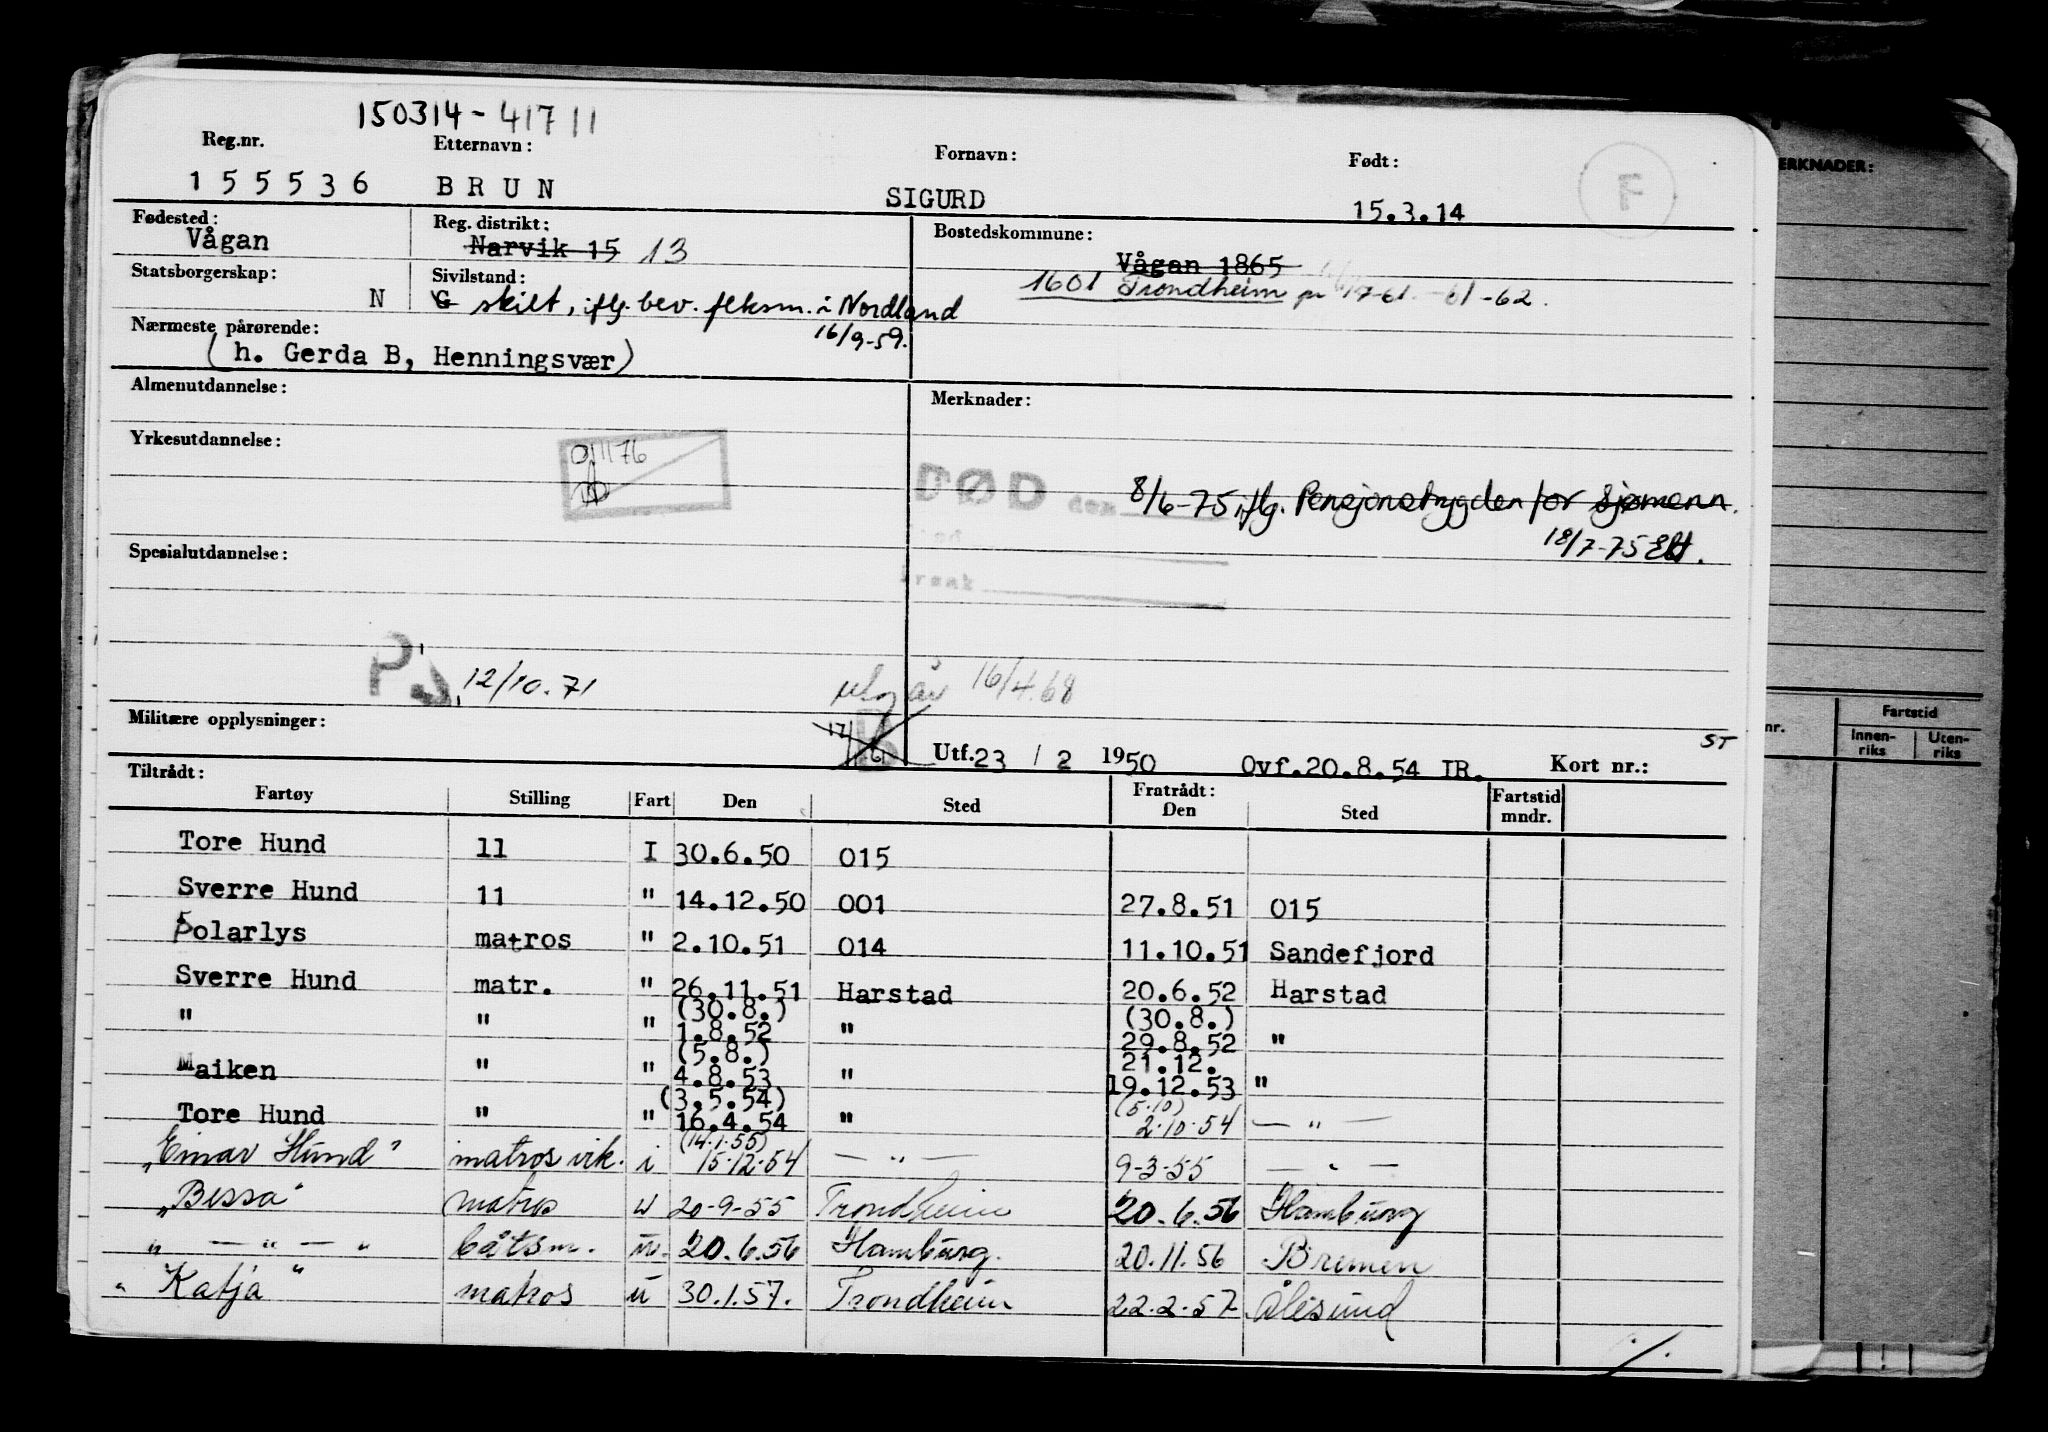 150314-41711
Reg.nr. Etternavn: Fornavn: Født:
155536 BRUN SIGURD 15.3.14 F
Fødested: Reg. distrikt: Bostedskommune:
Vågan Narvik 15 13 Vågan 1865
Statsborgerskap: Sivilstand: 1601 Trondheim -61-62.
N G skilt, iflg. bev. flksm. i Nordland
Nærmeste pårørende: 16/9-59.
(h. Gerda B, Henningsvær)
Almenutdannelse: Merknader:
Yrkesutdannelse:
DØD den 8/6-75 iflg. Pensjonstrygden for sjømenn.
18/7-75
Spesialutdannelse:
PJ. 12/10.71 16/4.68
Militære opplysninger:
ST
Utf. 23 / 2 1950 Ovf.20.8.54 IR. Kort nr.:
Tiltrådt: Fratrådt:
Fartøy Stilling Fart Den Sted Den Sted Fartstid mndr.
Tore Hund 11 I 30.6.50 015
Sverre Hund 11 " 14.12.50 001 27.8.51 015
Polarlys matros " 2.10.51 014 11.10.51 Sandefjord
Sverre Hund matr. " 26.11.51 Harstad 20.6.52 Harstad
(30.8.) (30.8.)
" " " 1.8.52 " 29.8.52 "
(5.8.) 21.12.
Maiken " " 4.8.53 " 19.12.53 "
(3.5.54) (5.10)
Tore Hund " " 16.4.54 " 2.10.54 — " —
(14.1.55)
"Einar Hund" matros vik. i 15.12.54 — " — 9-3-55 — " —
"Bessa" matros u 20-9-55 Trondheim 20.6.56 Hamburg
" — " — " båtsm. u. 20.6.56 Hamburg. 20.11.56 Bremen
"Katja" matros u 30.1.57. Trondheim 22.2.57 Ålesund
./.
ERKNADER:
nr. Fartstid
Innen-riks Uten-riks